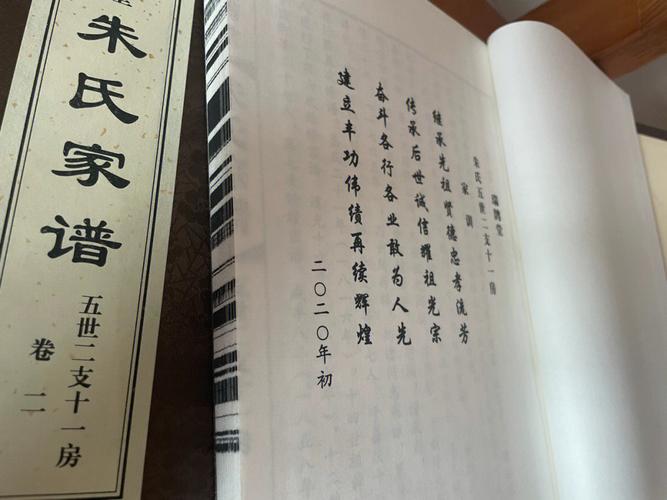 朱氏家谱
五世二支十一房
卷二
朱氏五世二支十一房
家训
继承先祖贤德忠孝流芳
传承后世诚信耀祖光宗
奋斗各行各业敢为人先
建立丰功伟绩再续辉煌
二〇二〇年初